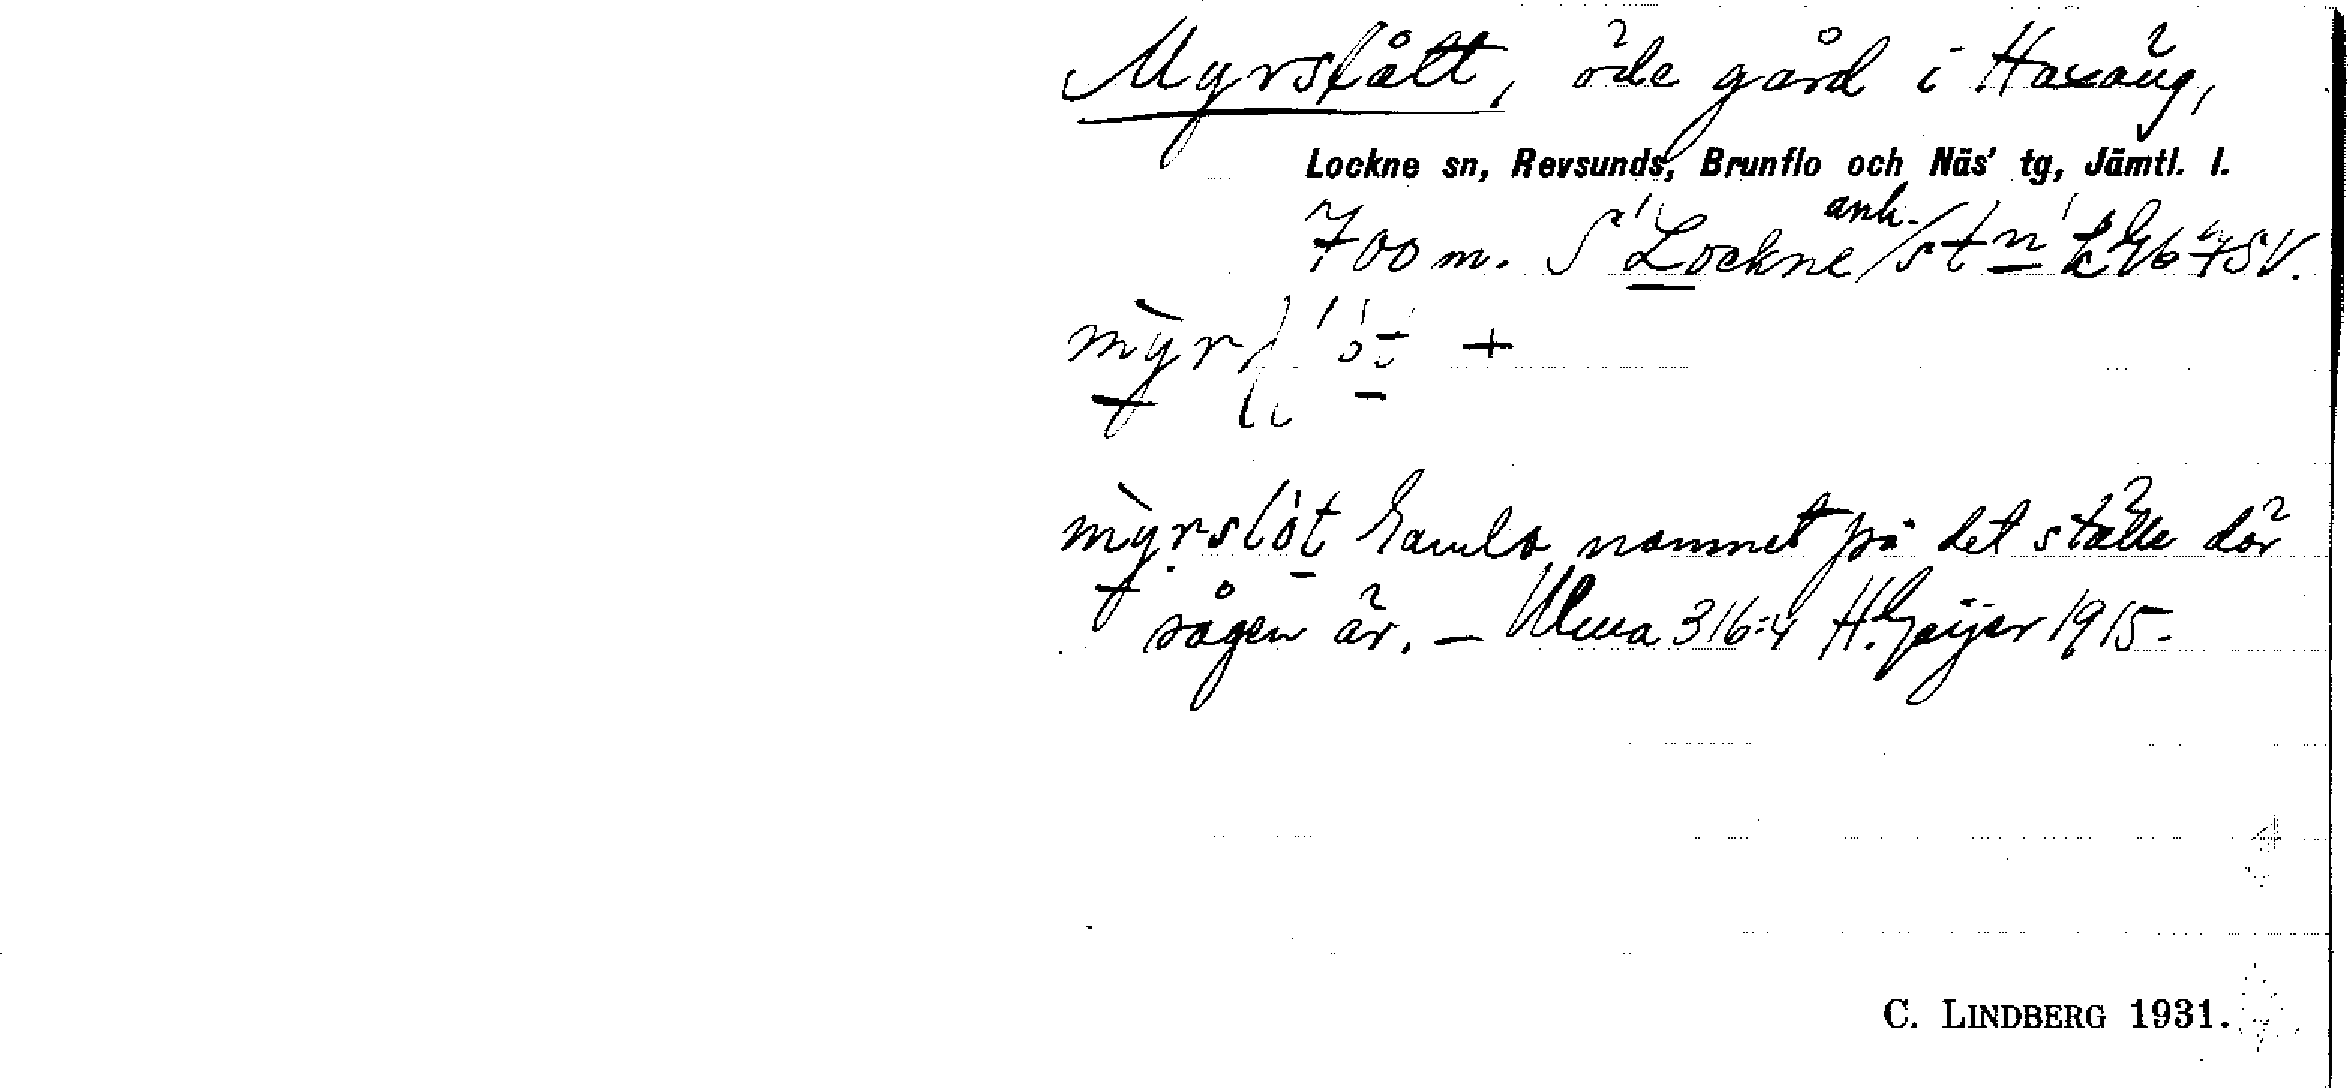 Myrslått, öde gård i Haxäng,
Lockne sn, Revsunds, Brunflo och Näs' tg, Jämtl. l.
700 m. S Lockne anh. st n 75V.
myrslòt +
myrslòt Gamla namnet på det ställe där
sågen är. — Ulma 316:4 H. Geijer 1915.
C. LINDBERG 1931.